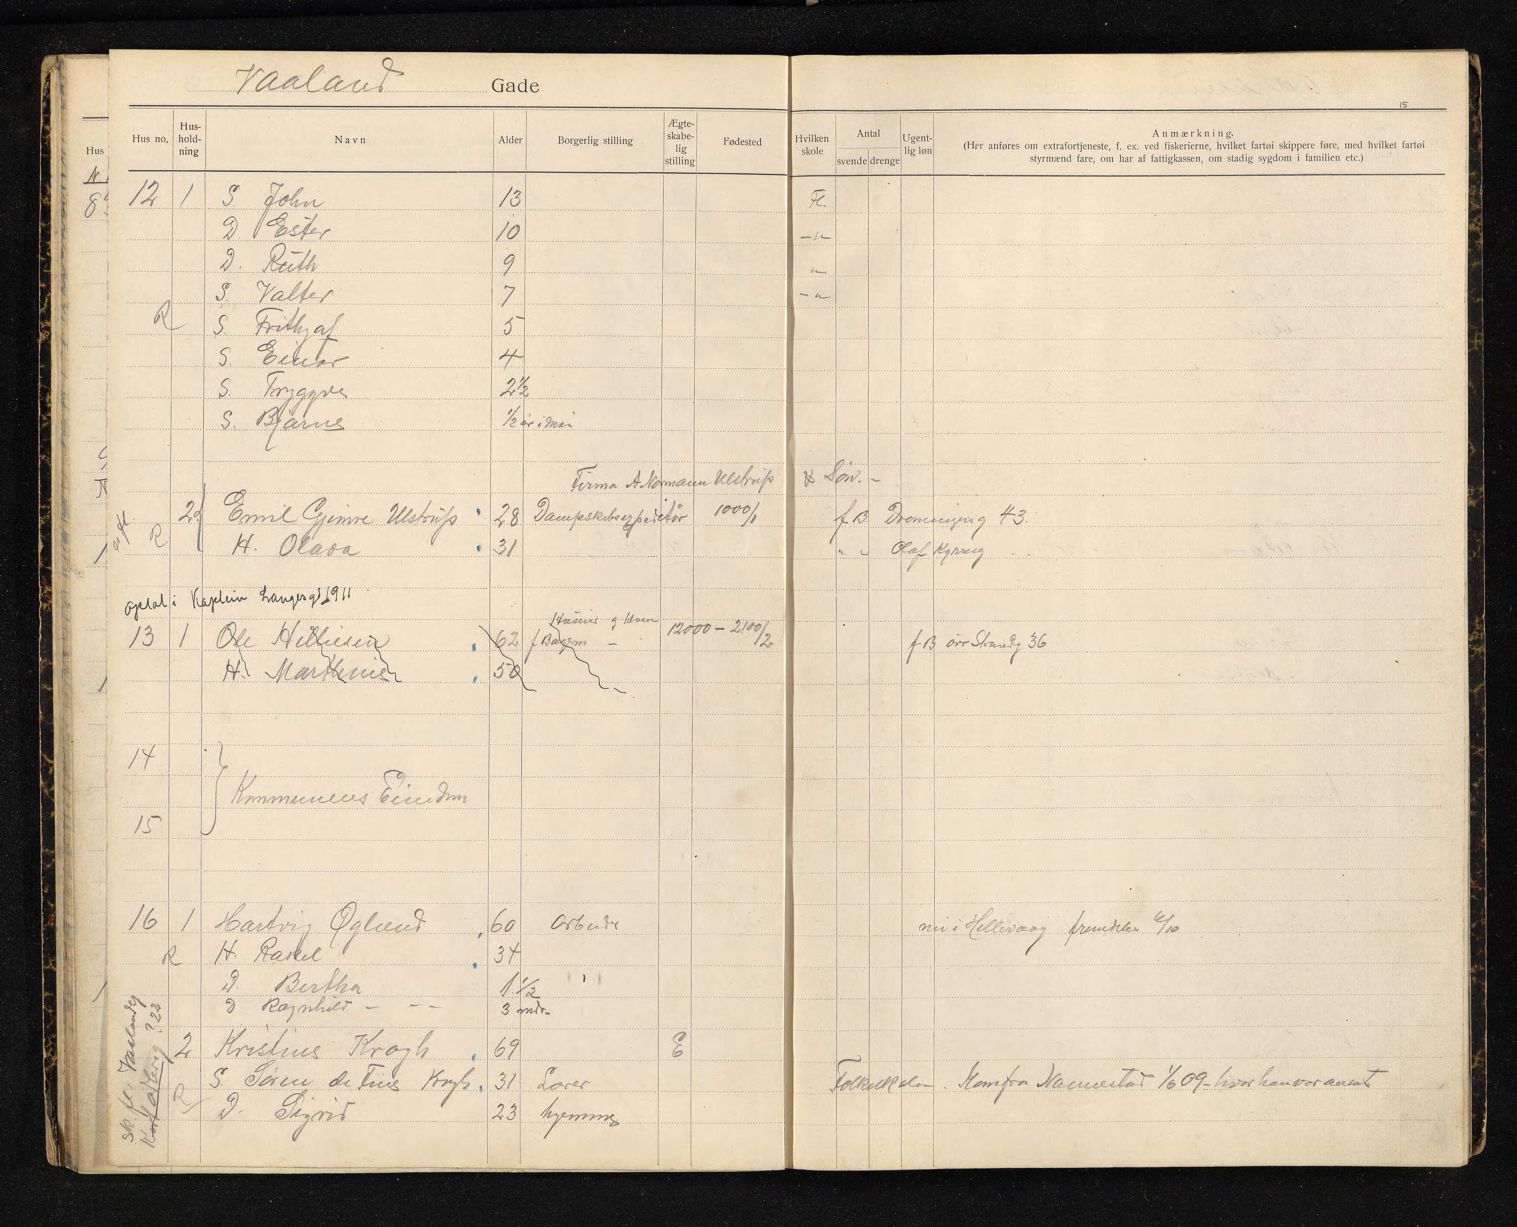 Vaaland Gade
15
Hus no. Hus-hold-ning Navn Alder Borgerlig stilling Ægte-skabe-lig stilling Fødested Hvilken skole Antal svende drenge Ugent-lig løn Anmærkning.
(Her anføres om extrafortjeneste, f. ex. ved fiskerierne, hvilket fartøi skippere føre, med hvilket fartøi
styrmænd fare, om har af fattigkassen, om stadig sygdom i familien etc.)
Hus
12 1 S. John 13 Fl.
D Ester 10 -"-
D. Ruth 9 "
S. Valter 7 -"-
R S. Frithjof 5
S. Einar 4
S. Tryggve 2 1/2
S. Bjarne 1/2 år i Mai
Firma A Normann Ulstrup & Søn. -
2 Emil Gjimre Ulstrup 28 Dampskibsexpeditør 1000/1 f B Dronningensg 43.
R H. Olava 31 " " Olaf Kyrreg
optat i Kaptein Langesg 1911
13 1 Ole Helliesen 62 f Bagem - Huseier og Havn 12000 - 2100/2 f B øvr Strandg 36
H. Marthine 50
14
Kommunens Eiendom
15
16 1 Hartvig Øglænd 60 Arbeider nu i Hellevaag fremdeles 4/10
R H. Rakel 34
D. Bertha 1 1/2
D Ragnhild - -- 3 mdr.
2 Kristine Krogh 69 E
S Søren de Fine Krogh 31 Lærer Folkeskolen. Kom fra Nannestad 1/6 09 - hvor han var ansat
R D. Sigrid 23 hjemme